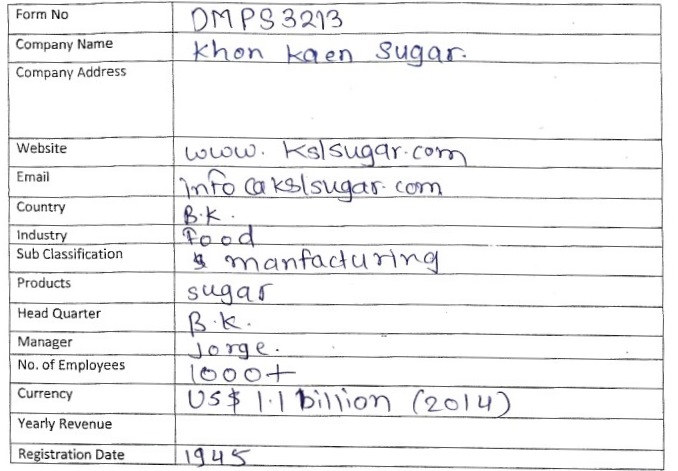 Form No DMPS3213
Company Name Khon Kaen Sugar.
Company Address
Website www.kslsugar.com
Email Info@kslsugar.com
Country B.K.
Industry Food
Sub Classification & manfacturing
Products sugar
Head Quarter B.K.
Manager Jorge.
No. of Employees 1000+
Currency US$ 1.1 billion (2014)
Yearly Revenue
Registration Date 1945